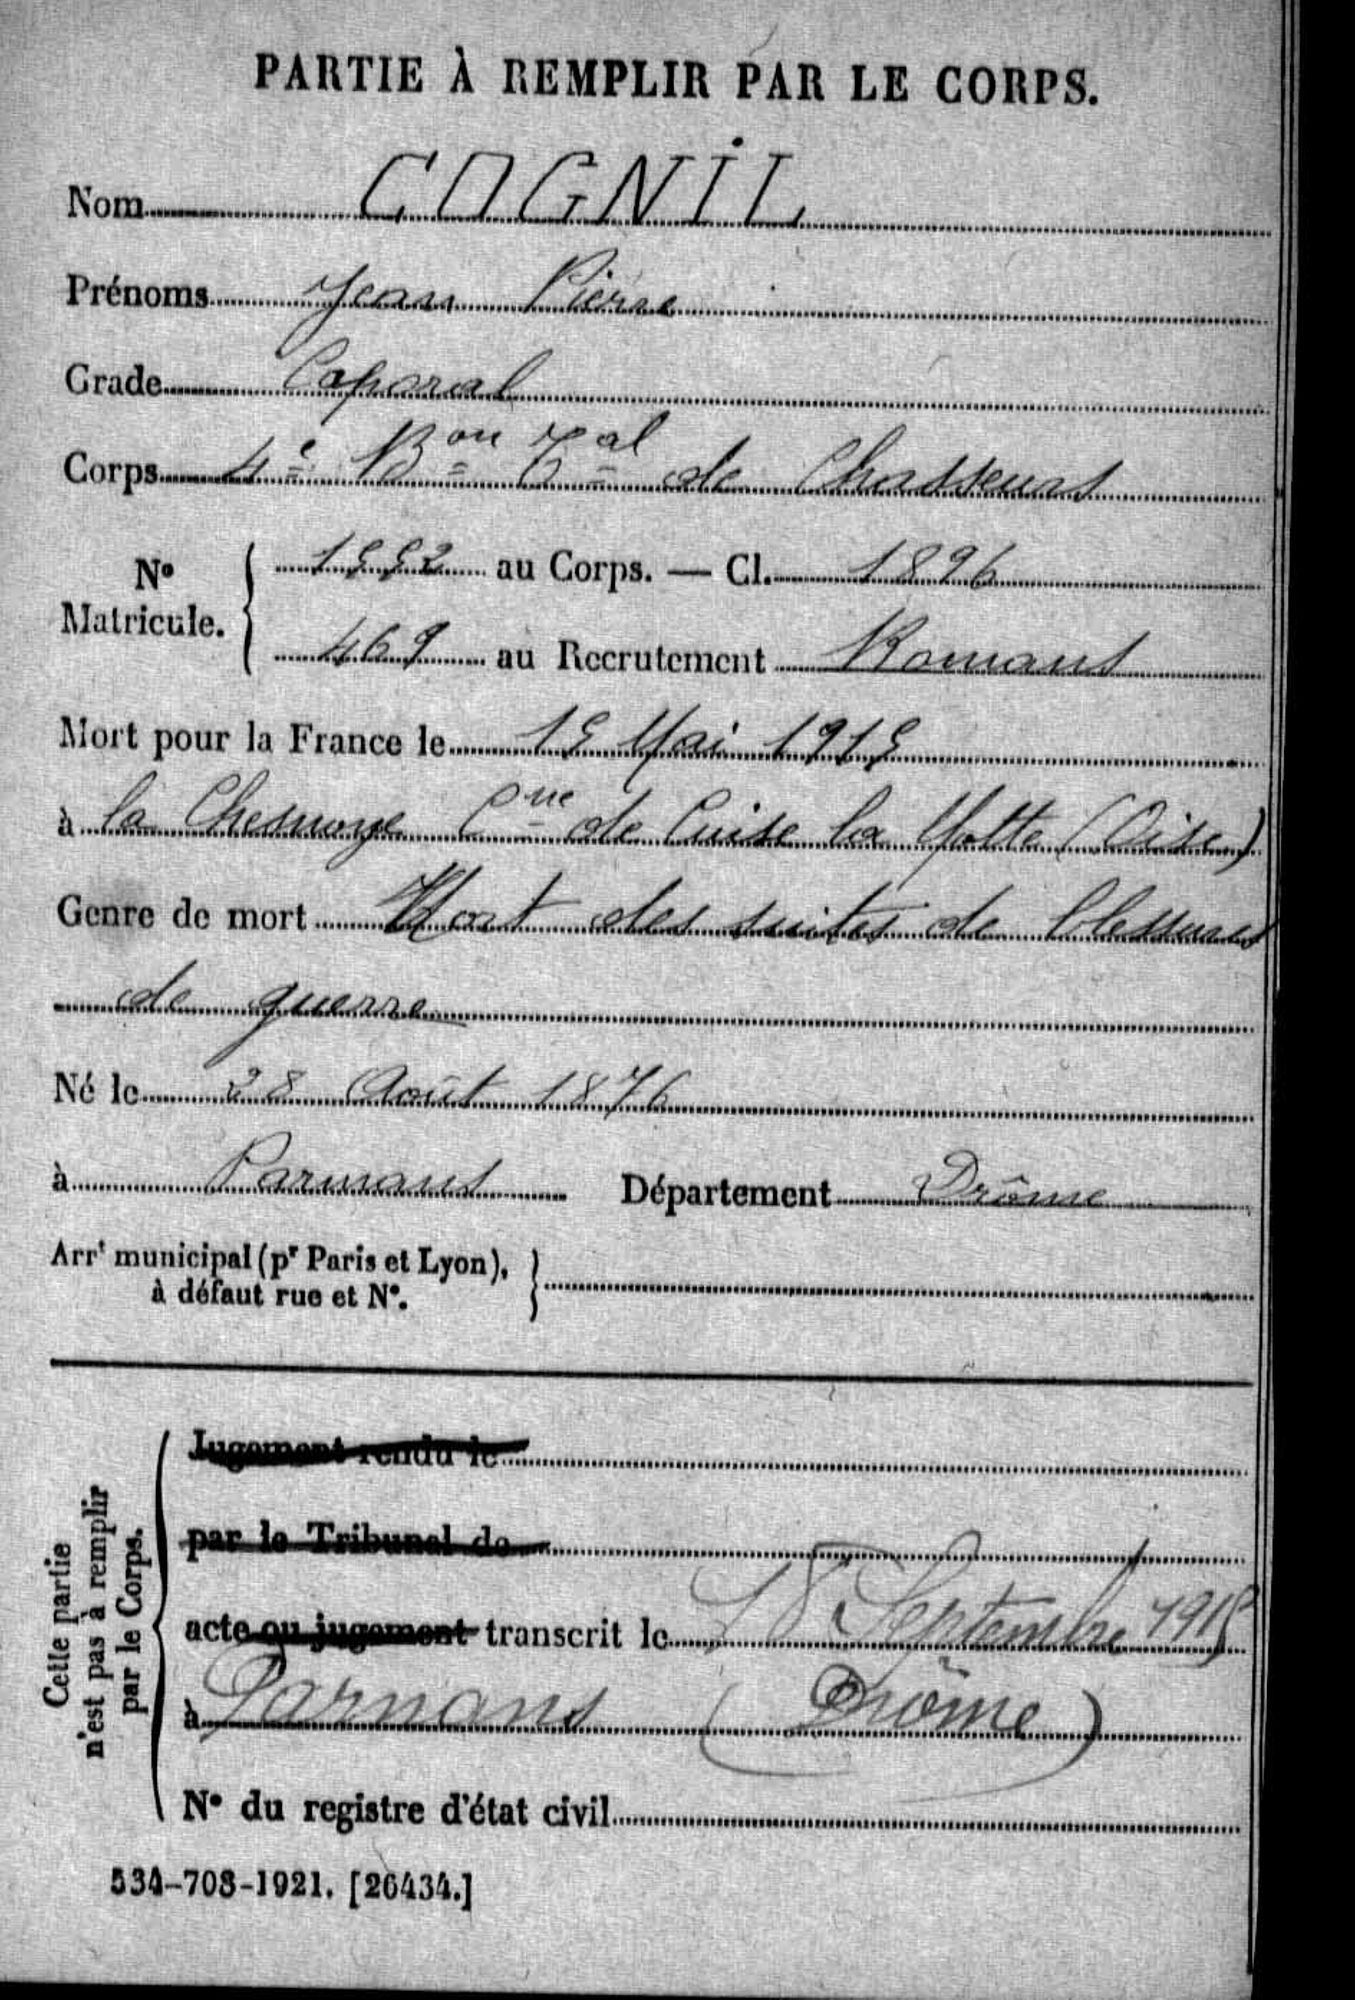 PARTIE À REMPLIR PAR LE CORPS.
Nom COGNIL
Prénoms Jean Pierre
Grade Caporal
Corps 4e Bon Tal de Chasseurs
No Matricule. { 1552 au Corps. — Cl. 1896
469 au Recrutement Romans
Mort pour la France le 15 Mai 1915
à la Chesnoye Cne de Cuise la Motte (Oise)
Genre de mort Mort des suites de blessures
de guerre
Né le 28 Août 1876
à Parnans Département Drôme
Arrt municipal (pr Paris et Lyon),
à défaut rue et No.
Cette partie
n'est pas à remplir
par le Corps.
Jugement rendu le
par le Tribunal de
acte ou jugement transcrit le 18 Septembre 1915
à Parnans (Drôme)
No du registre d'état civil
534-708-1921. [26434.]